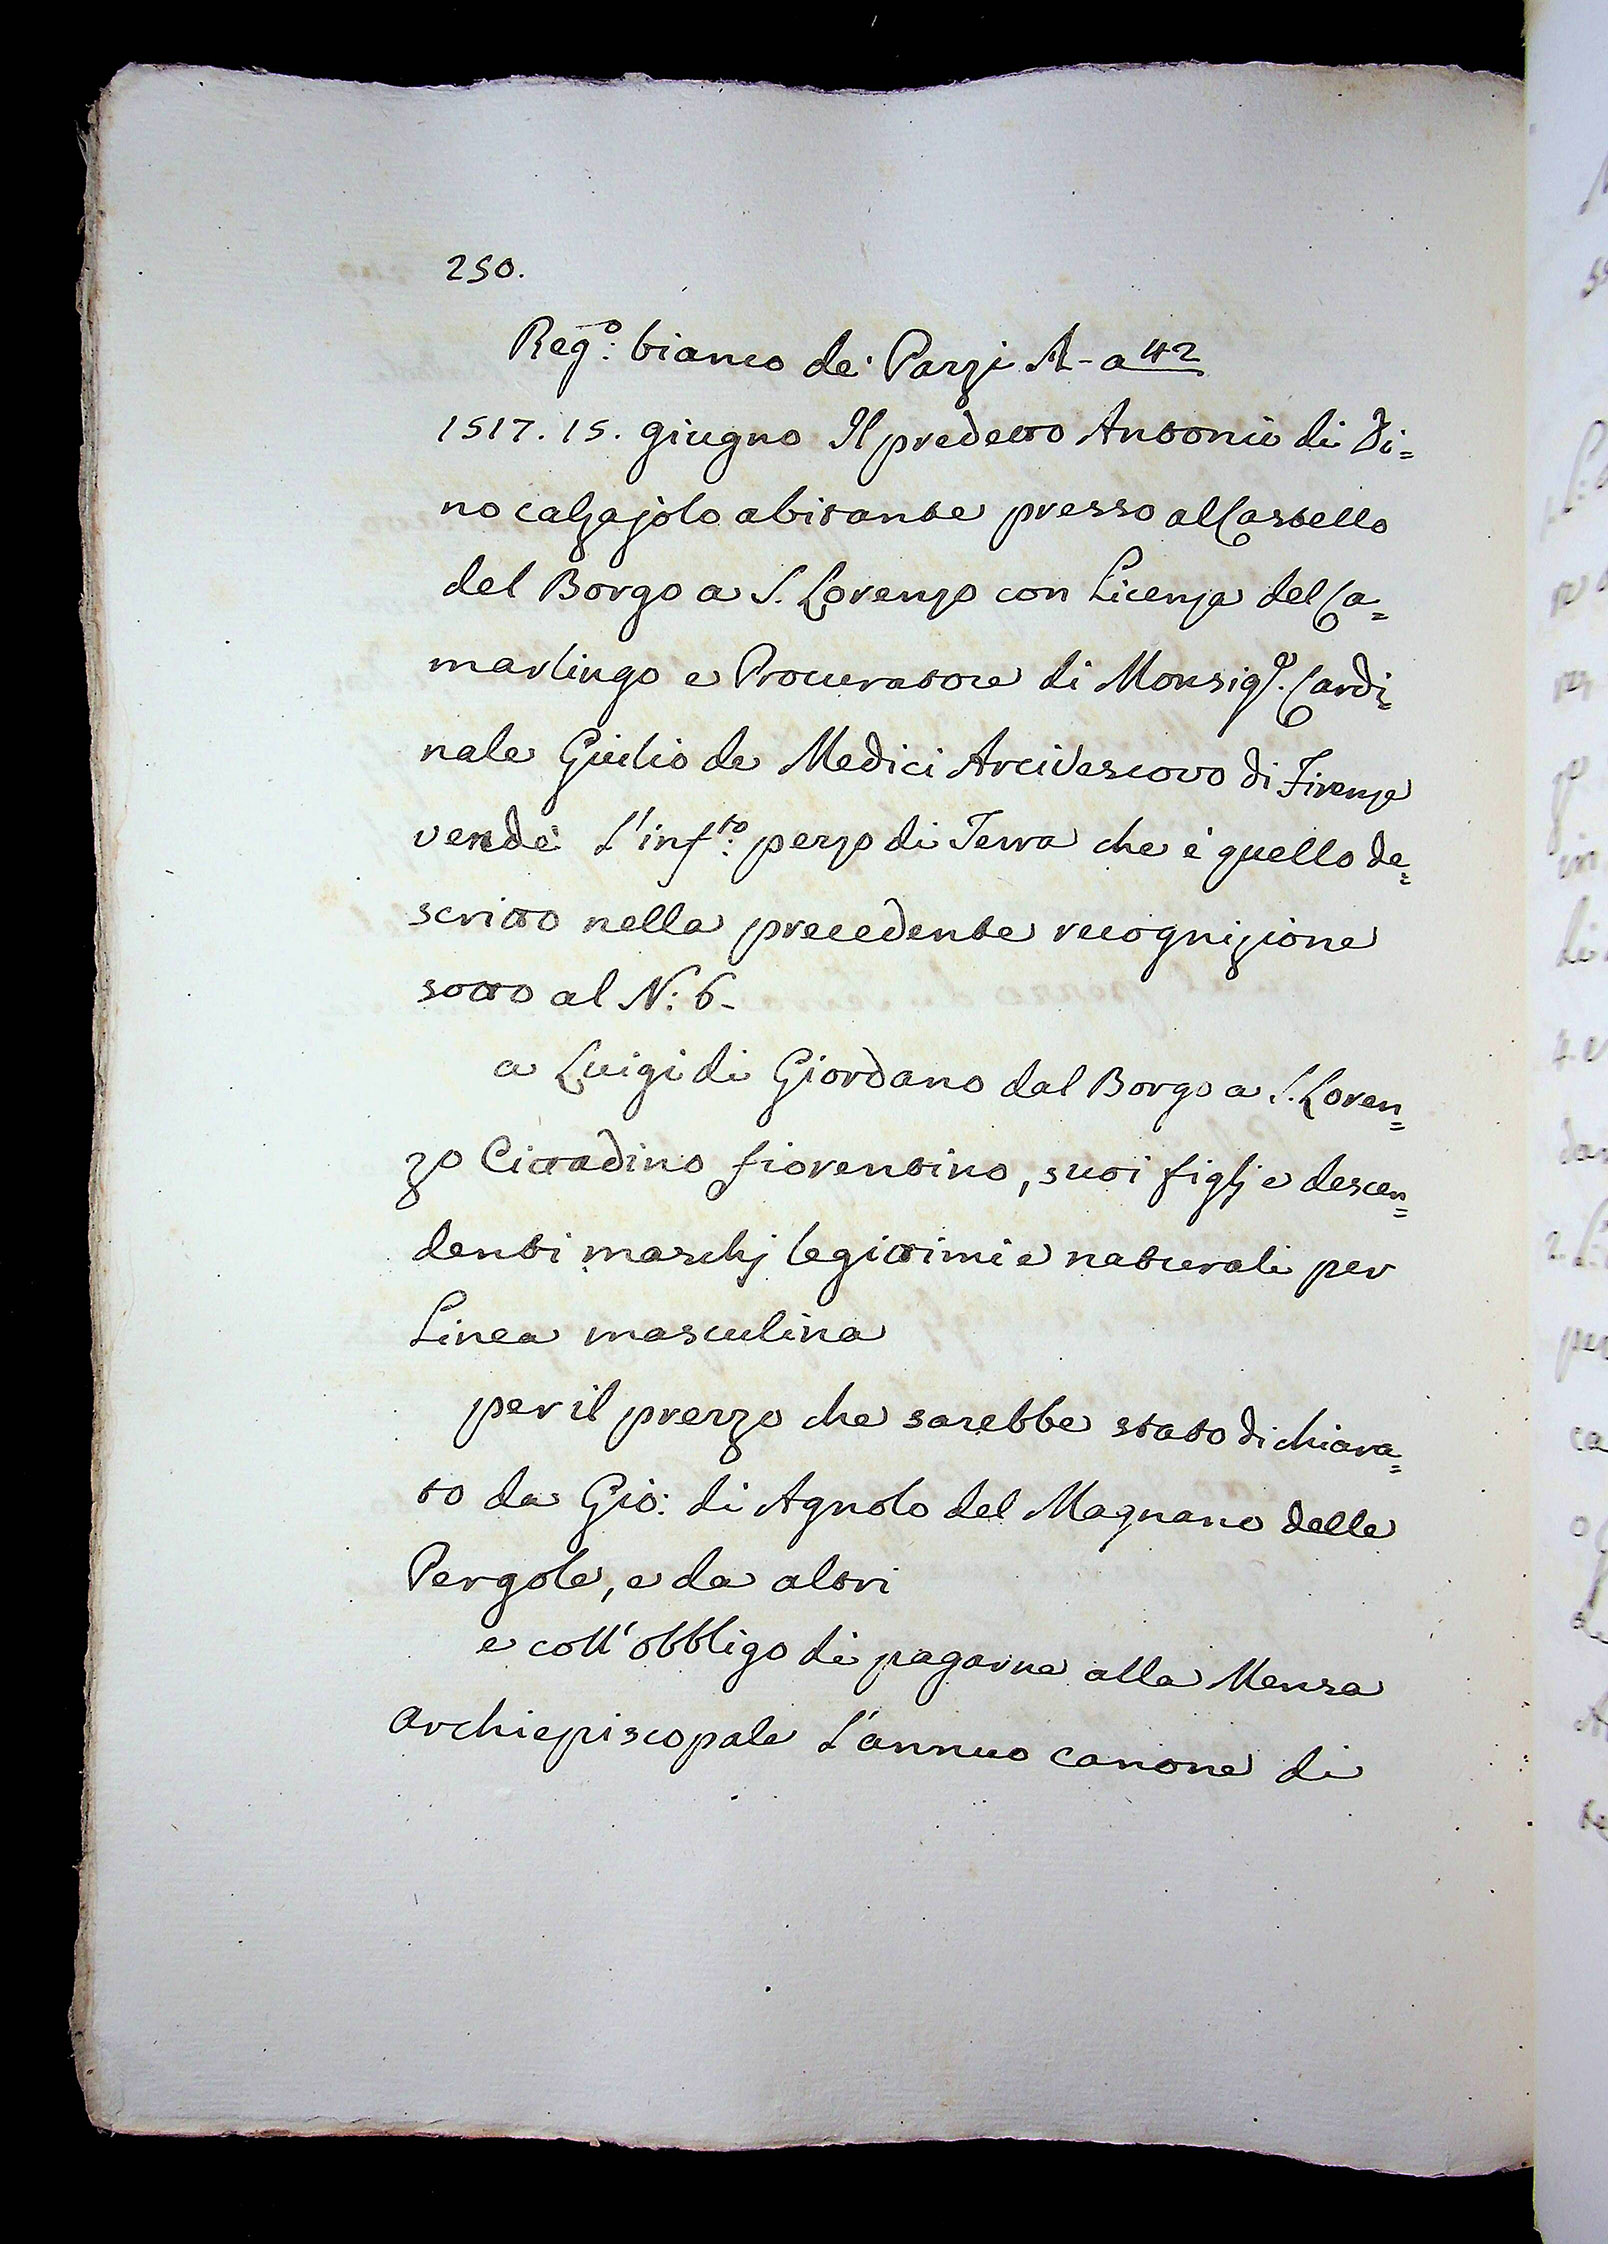 250.
Reg.º bianco de' Pazzi A - a 42
1517. 15. giugno Il predetto Antonio di Di=
no calzajolo abitante presso al Castello
del Borgo a S. Lorenzo con Licenza del Ca=
marlingo e Procuratore di Monsig.r Cardi=
nale Giulio de Medici Arcivescovo di Firenze
vendè l'inf.to pezzo di Terra che è quello de=
scritto nella precedente recognizione
sotto al N: 6-
a Luigi di Giordano dal Borgo a S. Loren=
zo Cittadino fiorentino, suoi figlj e descen=
denti maschj legittimi e naturali per
Linea masculina
per il prezzo che sarebbe stato dichiara=
to da Gio: di Agnolo del Magnano delle
Pergole, e da altri
e coll'obbligo di pagarne alla Mensa
Archiepiscopale l'annuo canone di